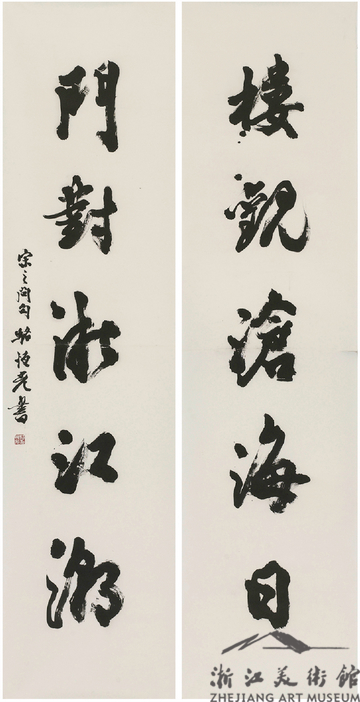 樓觀滄海日
門對浙江潮
宋之問句 駱恒光書
浙江美術館
ZHEJIANG ART MUSEUM